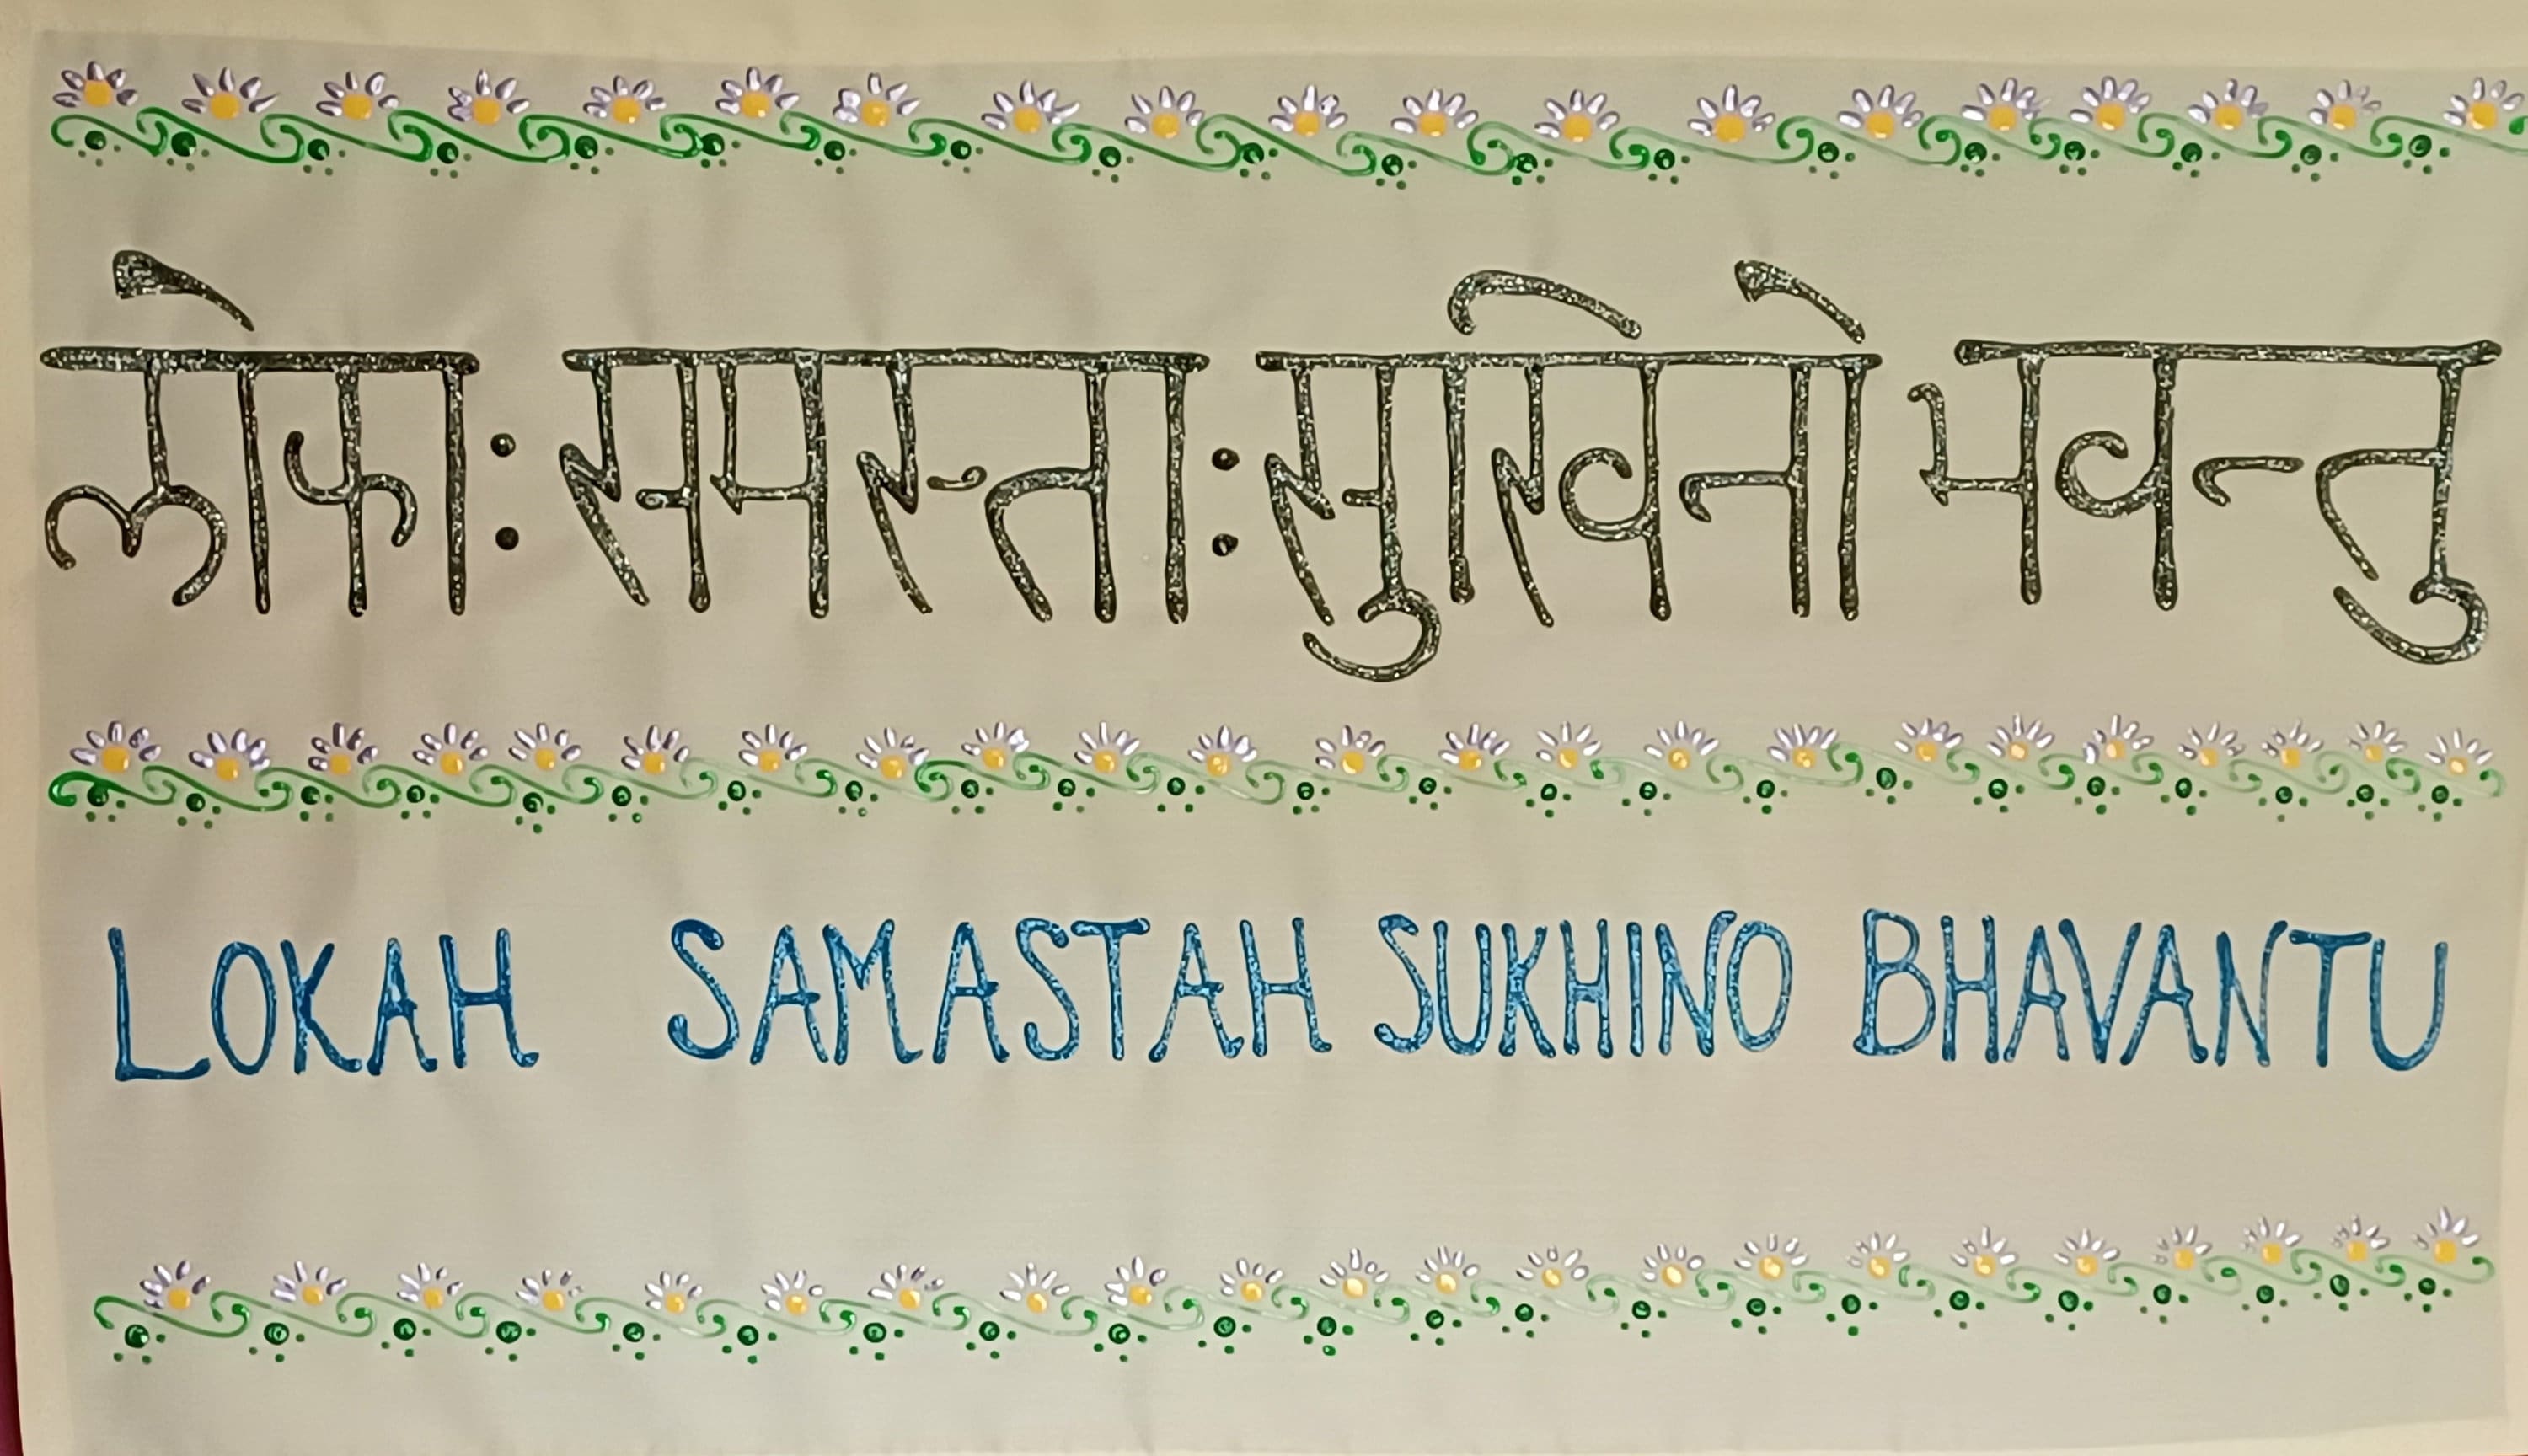 लोकाः समस्ताः सुखिनो भवन्तु
LOKAH SAMASTAH SUKHINO BHAVANTU